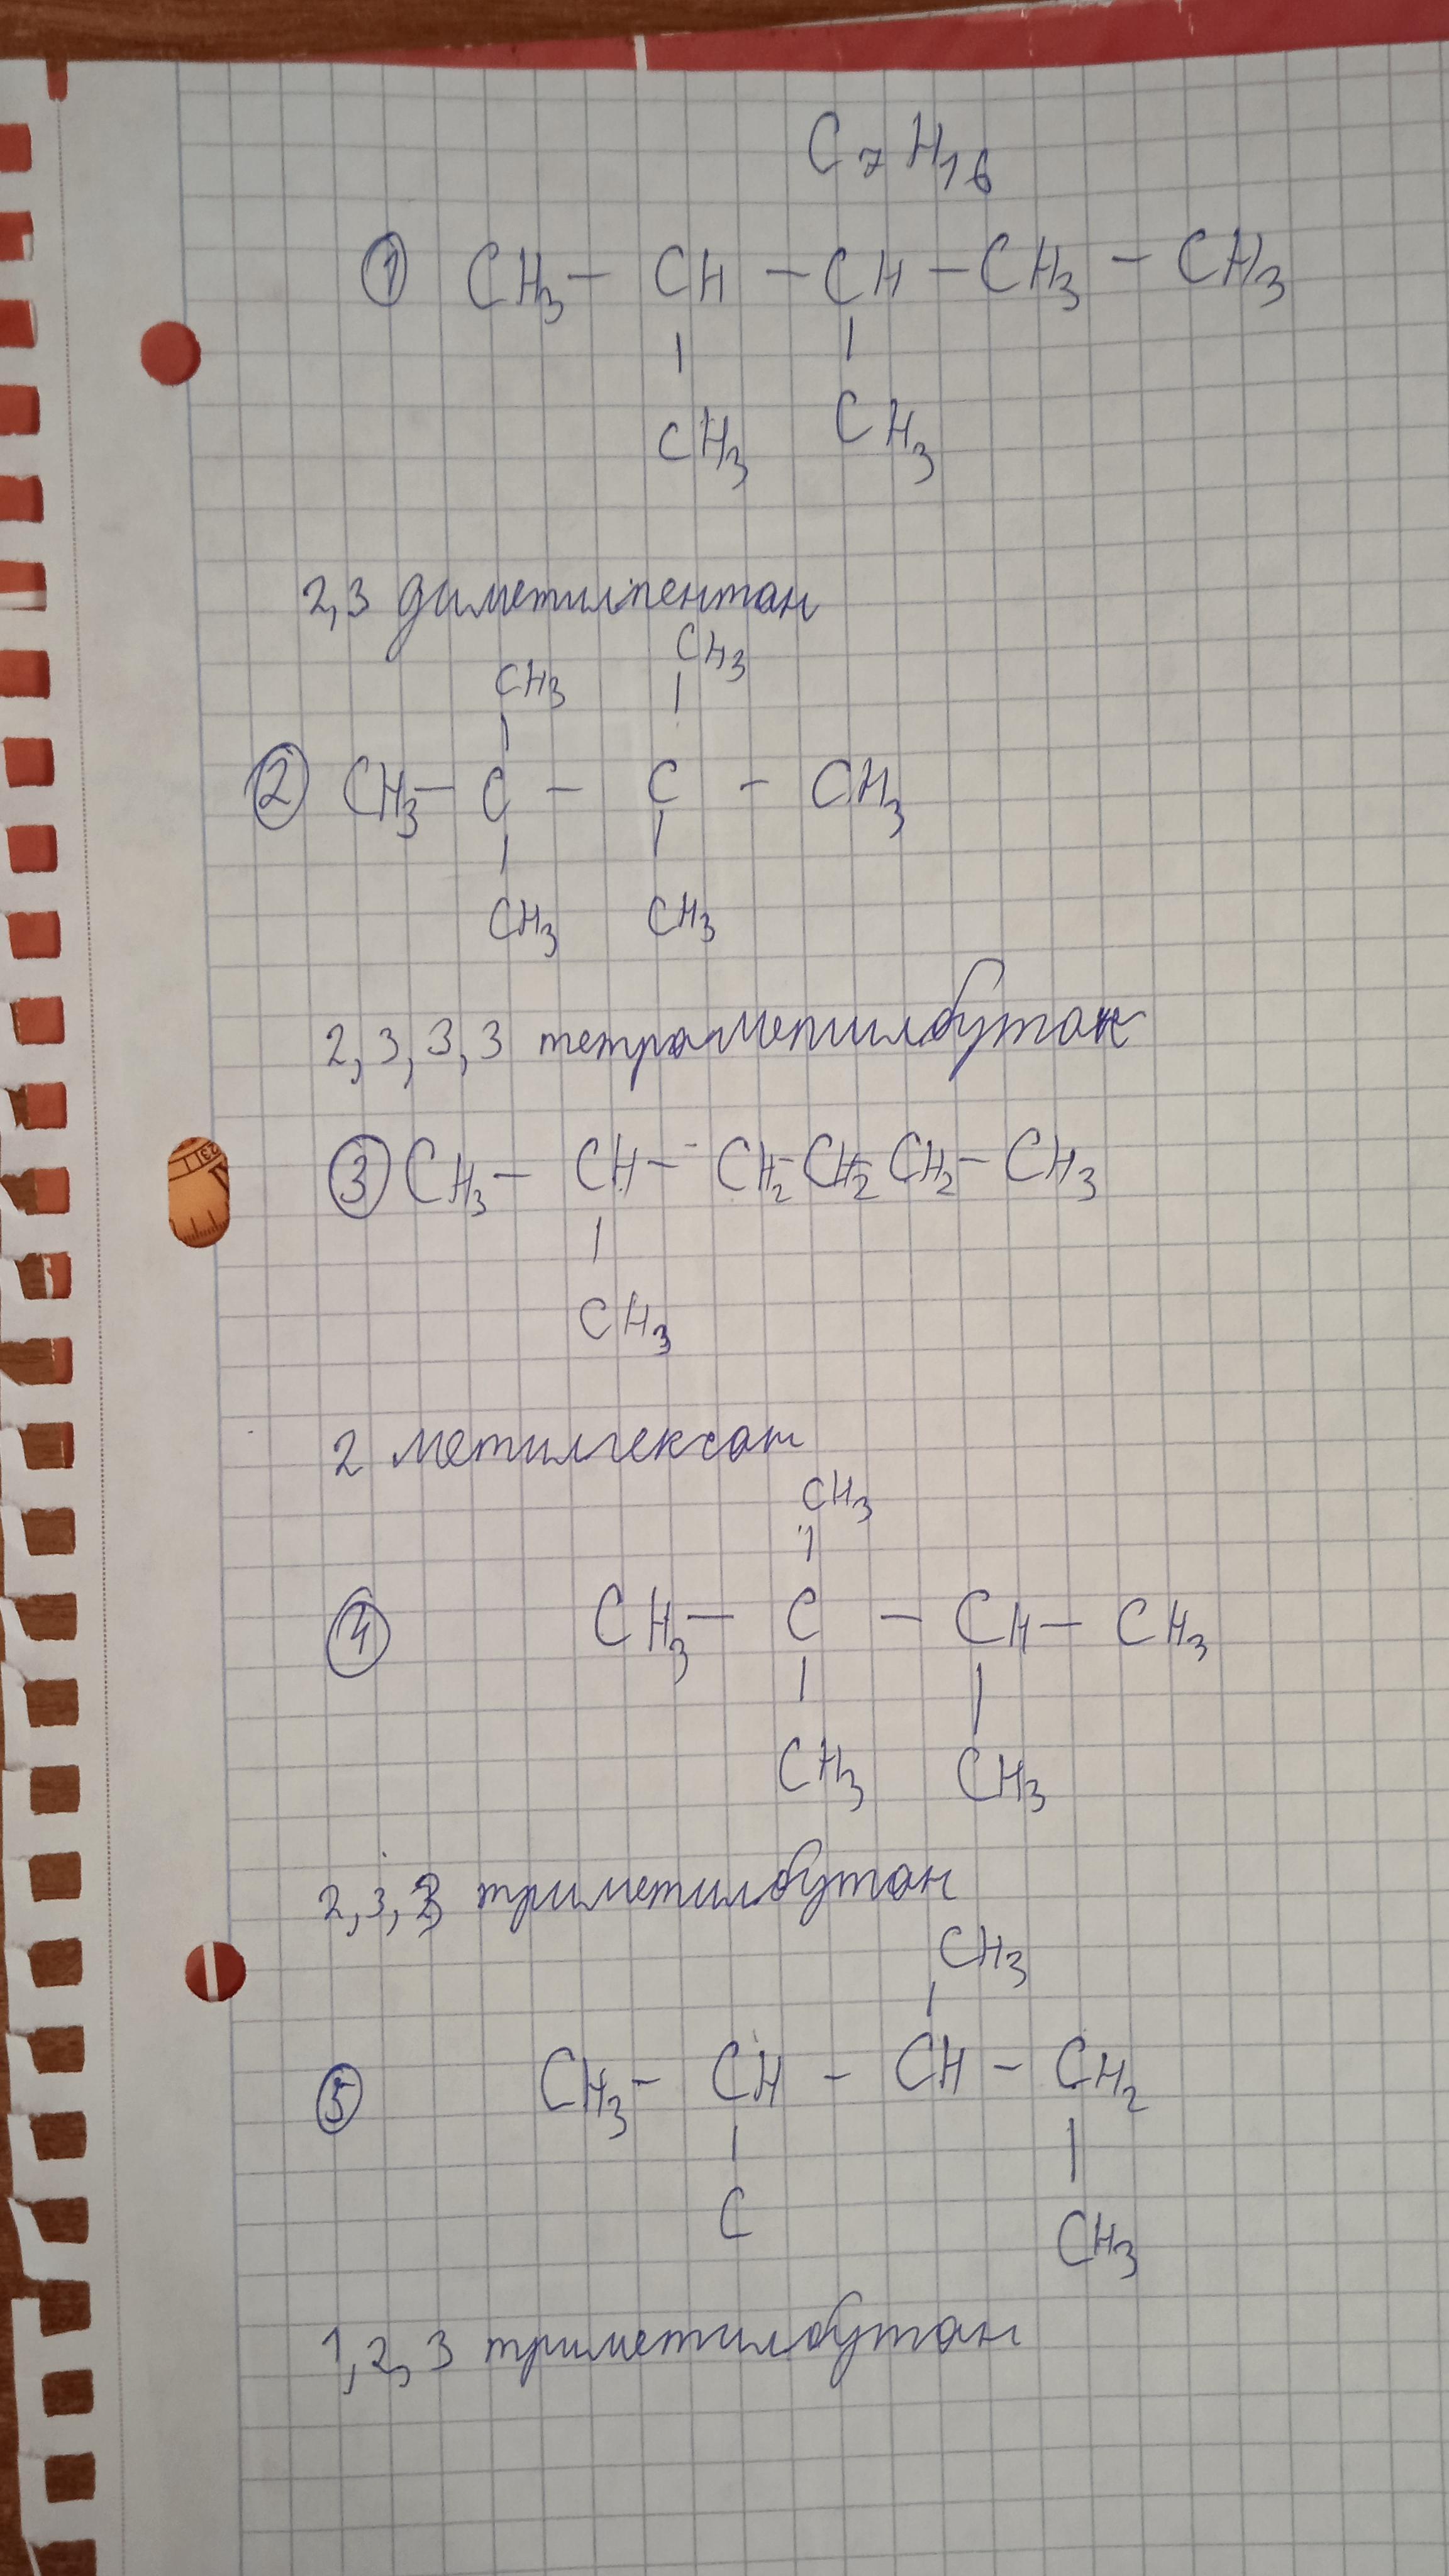 C₇H₁₆
① CH₃ - CH - CH - CH₃ - CH₃
| |
CH₃ CH₃
2,3 диметилпентан
CH₃ CH₃
| |
② CH₃ - C - C - CH₃
| |
CH₃ CH₃
2,3,3,3 тетраметилбутан
③ CH₃ - CH - CH₂-CH₂-CH₂ - CH₃
|
CH₃
2 метилгексан
CH₃
|
④ CH₃ - C - CH - CH₃
| |
CH₃ CH₃
2,3, триметилбутан
CH₃
|
⑤ CH₃ - CH - CH - CH₂
| |
C CH₃
1,2,3 триметилбутан